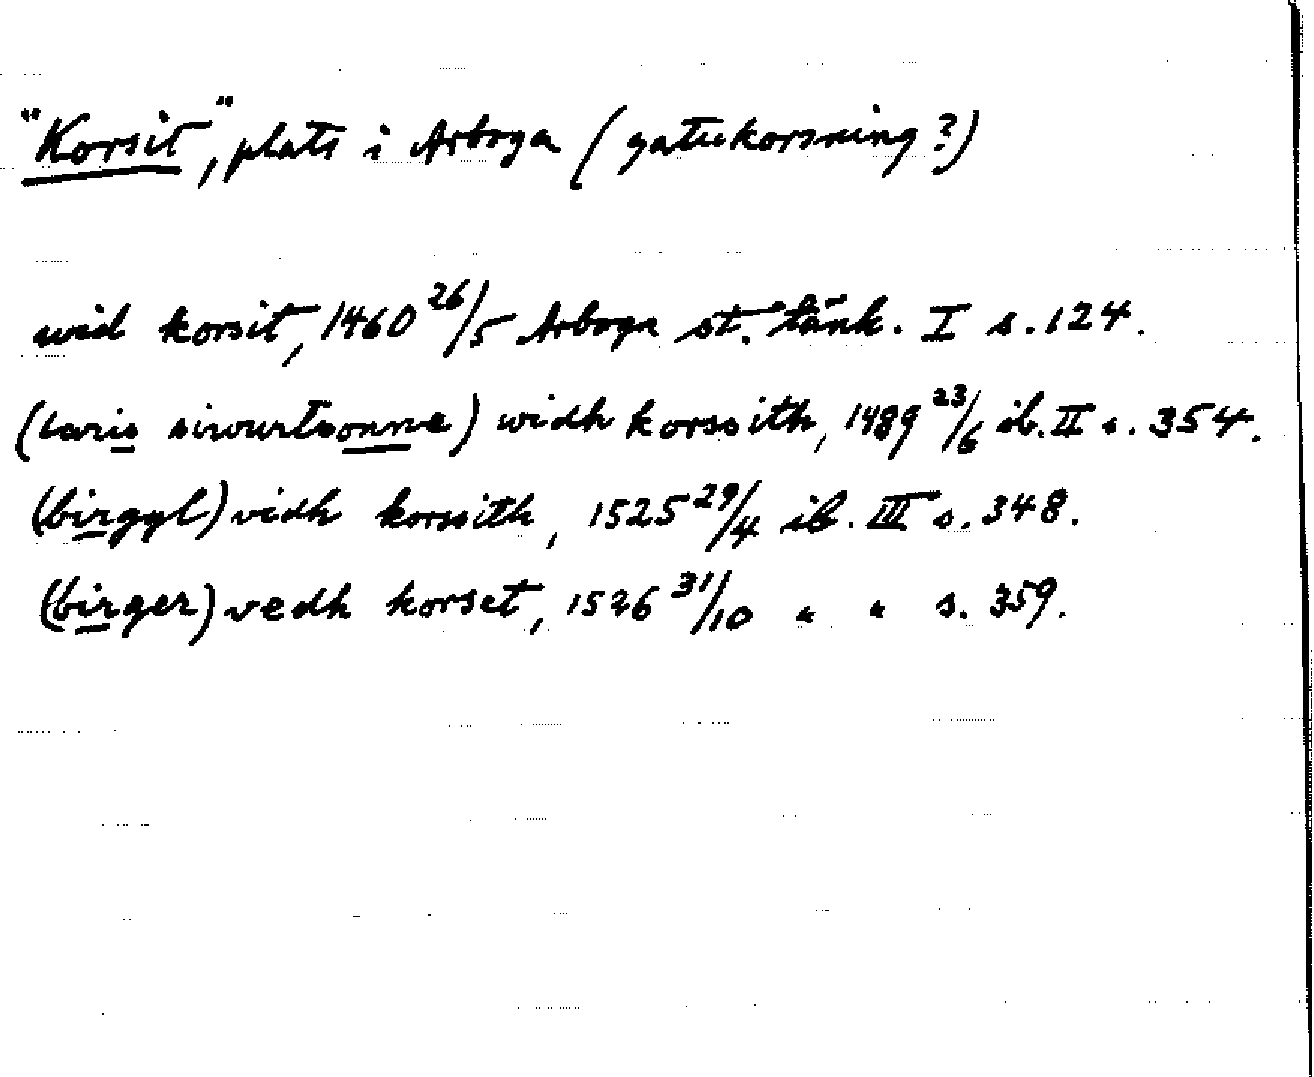 "Korsit", plats i Arboga (gatukorsning?)
wid korsit, 1460 26/5 Arboga st. tänk. I s. 124.
(laris siwurtsonne) widh korssith, 1489 23/6 ib. II s. 354.
(birggl) vidh korssith, 1525 29/4 ib. III s. 348.
(birger) vedh korset, 1526 31/10 " " s. 359.